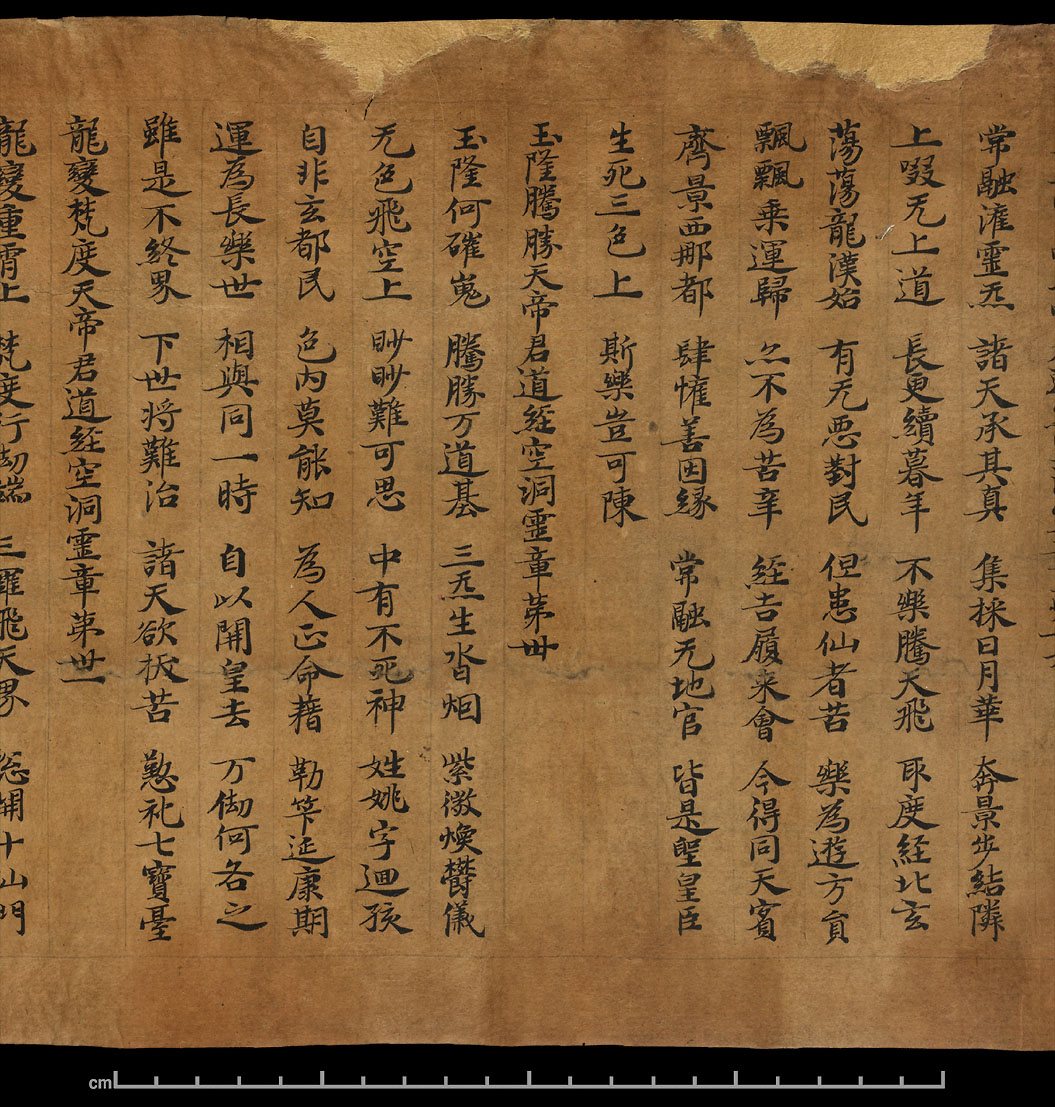 常融濯靈炁 諸天承其真 集採日月華 奔景步結隣
上啜无上道 長更續暮年 不樂騰天飛 耶度経北玄
蕩蕩龍漢始 有无惡對民 但患仙者苦 樂為遊方貟
飄飄乗運歸 亦不為苦辛 經吉履来會 今得同天賓
齊景西那都 肆惟善因縁 常融无地官 皆是聖皇臣
生死三色上 斯樂豈可陳
玉隆騰勝天帝君道經空洞靈章苐卅
玉隆何磪嵬 騰勝万道基 三炁生沓烟 紫微煥欝儀
无色飛空上 眇眇難可思 中有不死神 姓姚字迴孩
自非玄都民 色内莫能知 為人正命藉 勒筭延康期
運為長樂世 相與同一時 自以開皇去 万劫何各之
雖是不終界 下世将難治 諸天欲扳苦 懃礼七寶臺
龍變梵度天帝君道經空洞靈章苐卅一
龍變重霄上 梵度行劫端 三羅飛天界 捴開十山門